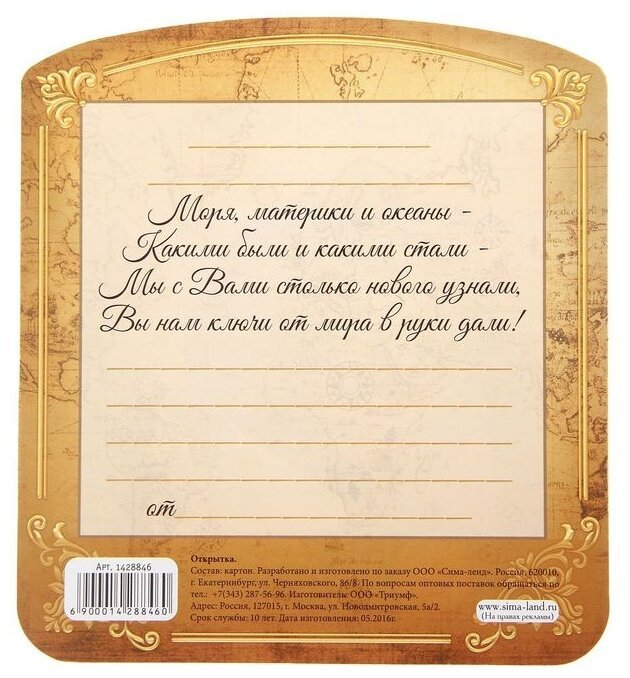 Моря, материки и океаны -
Какими были и какими стали -
Мы с Вами столько нового узнали,
Вы нам ключи от мира в руки дали!
от
Арт. 1428846
6 900014 288460
Открытка.
Состав: картон. Разработано и изготовлено по заказу ООО «Сима-ленд». Россия, 620010,
г. Екатеринбург, ул. Черняховского, 86/8. По вопросам оптовых поставок обращаться по
тел.: +7(343) 287-56-96. Изготовитель: ООО «Триумф».
Адрес: Россия, 127015, г. Москва, ул. Новодмитровская, 5а/2.
Срок службы: 10 лет. Дата изготовления: 05.2016г.
www.sima-land.ru
(На правах рекламы)